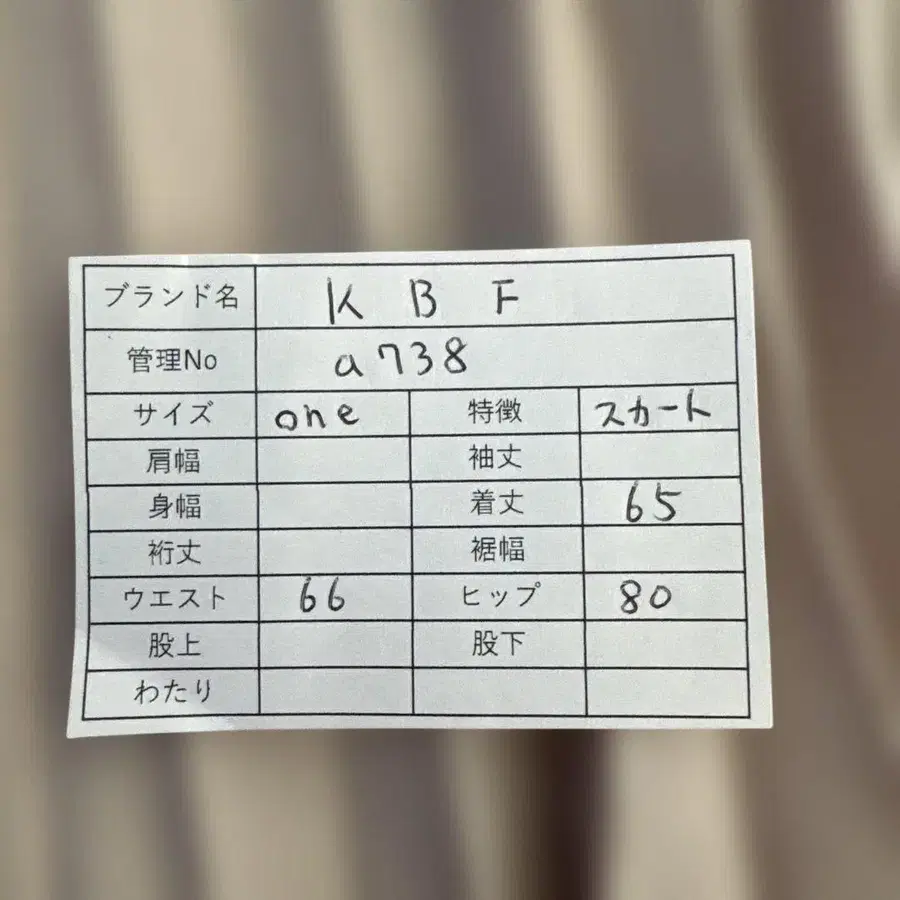 ブランド名 K B F
管理No a738
サイズ one 特徴 スカート
肩幅 袖丈
身幅 着丈 65
裄丈 裾幅
ウエスト 66 ヒップ 80
股上 股下
わたり